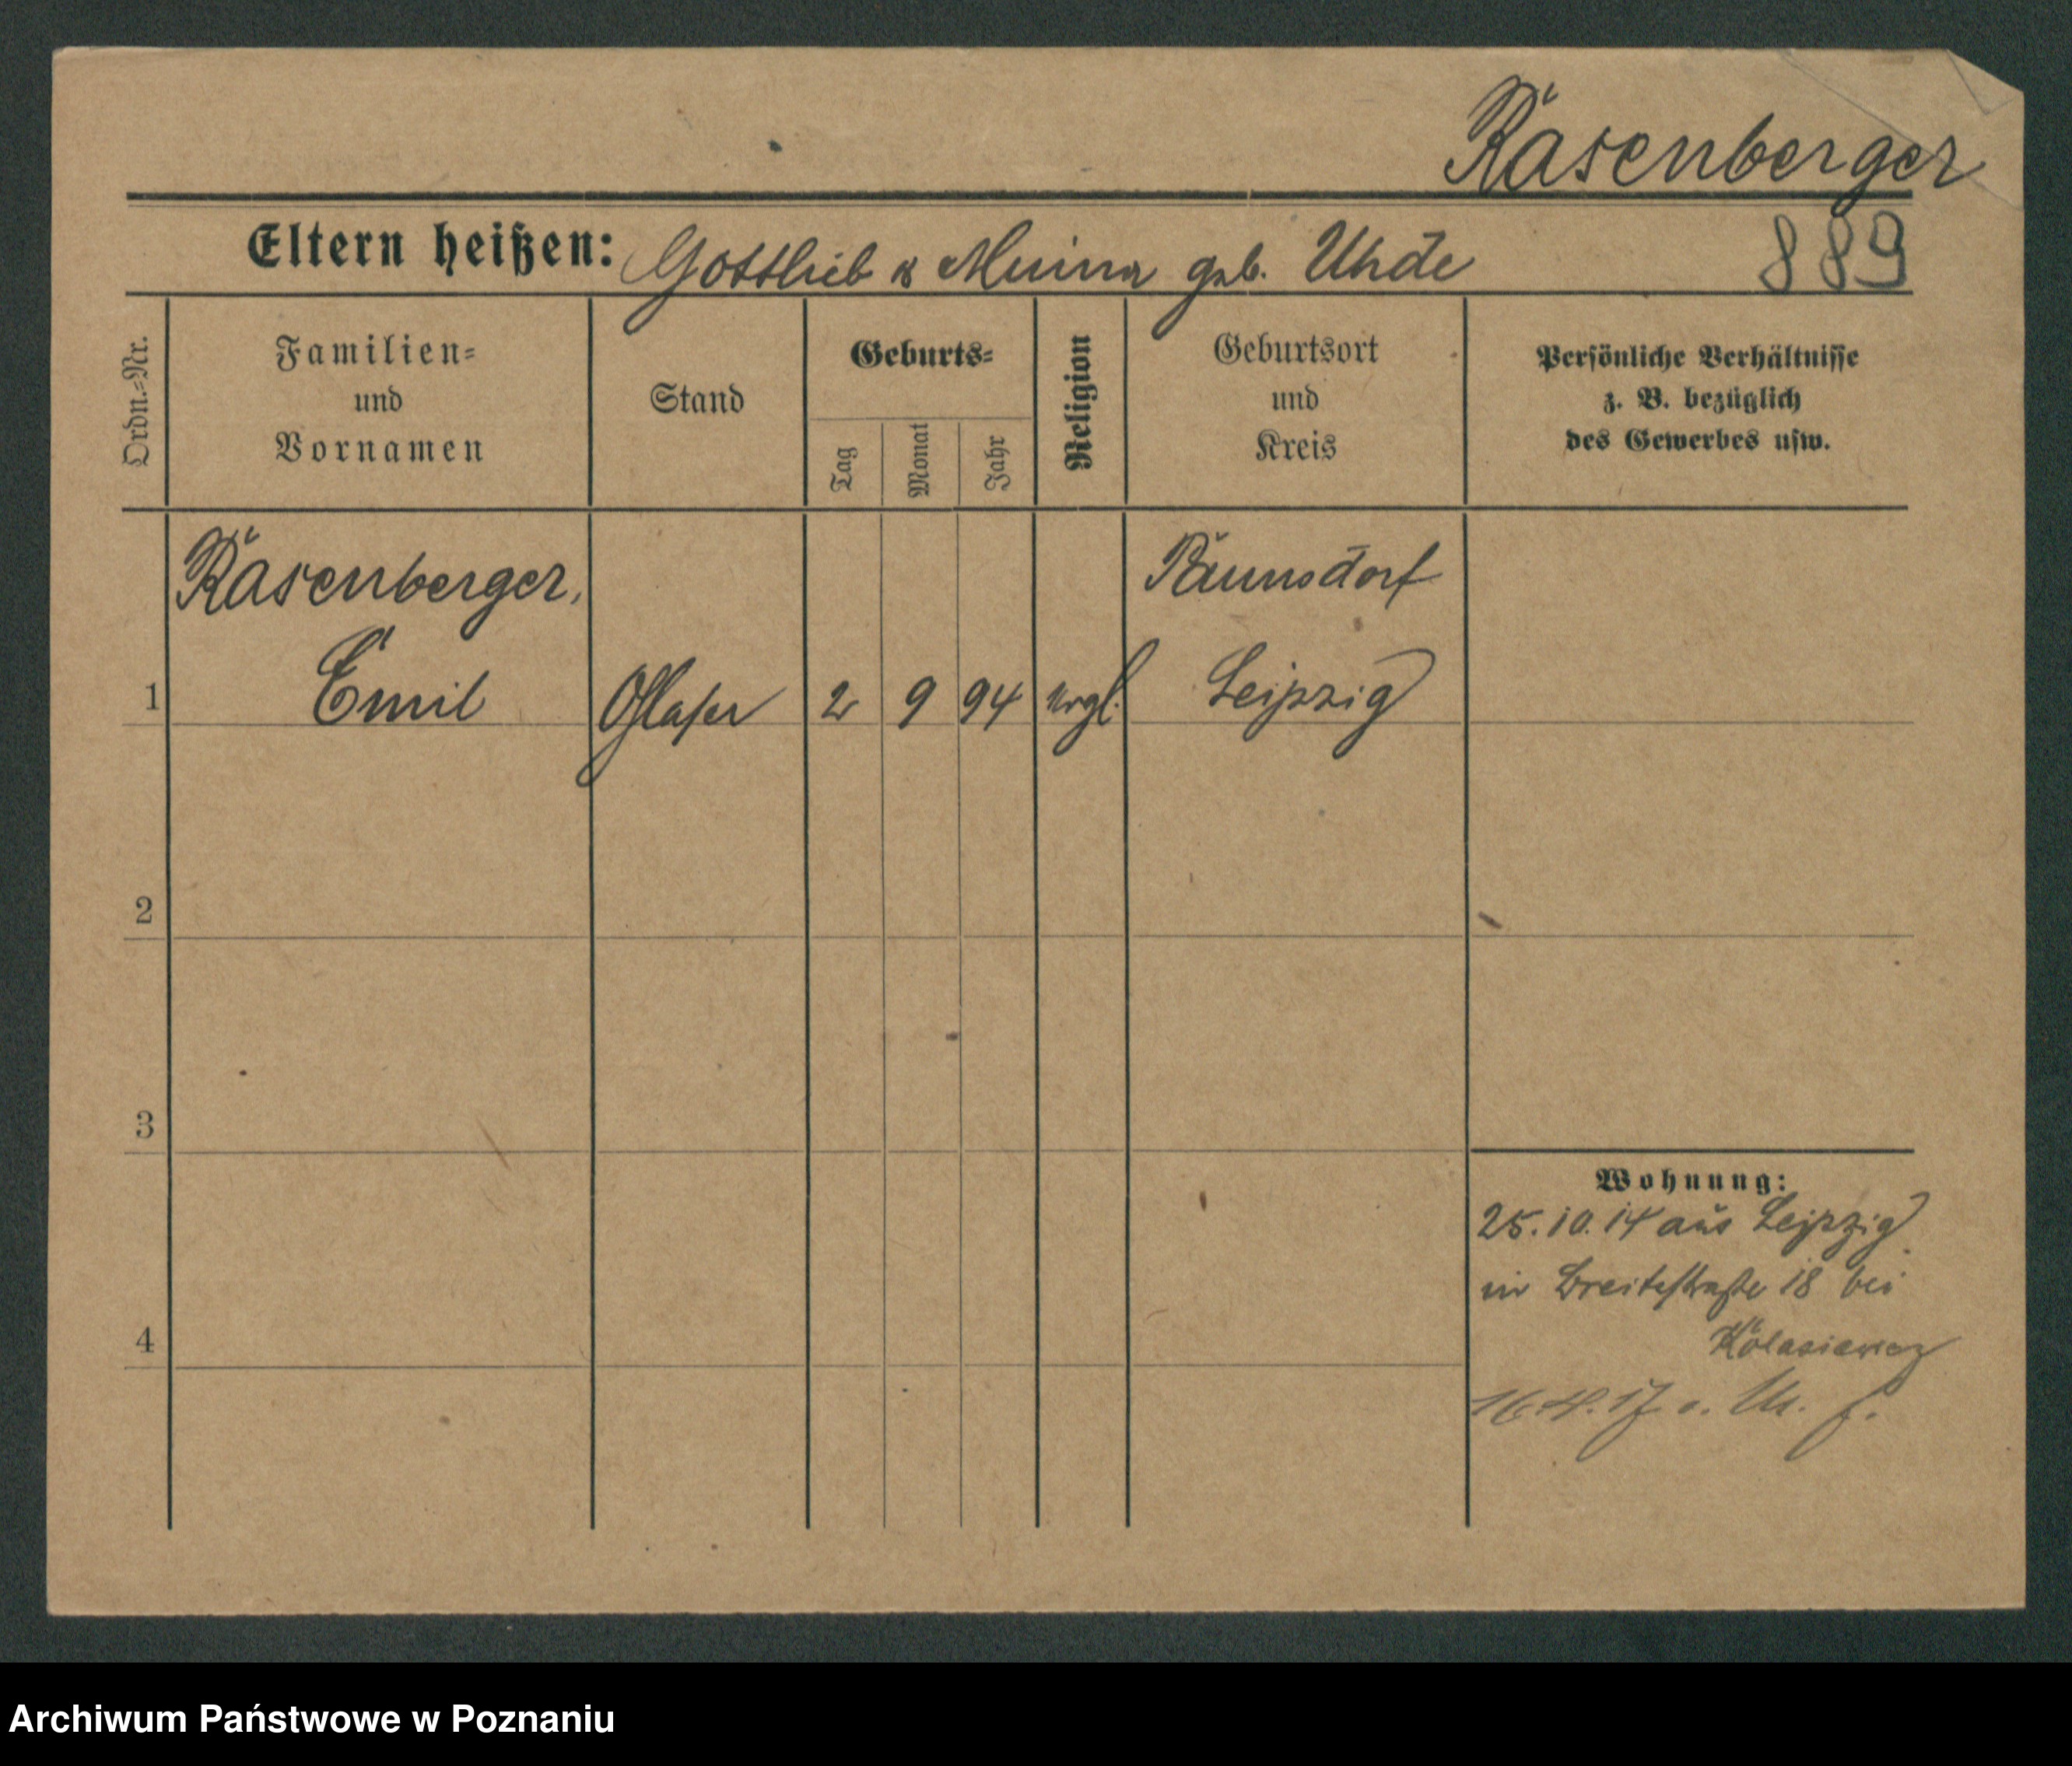 Räsenberger
Eltern heißen: Gottlieb & Minna geb. Uhde 889
Ordn.-Nr.
Familien-
und
Vornamen
Stand
Geburts-
Tag
Monat
Jahr
Religion
Geburtsort
und
Kreis
Persönliche Verhältnisse
z. B. bezüglich
des Gewerbes usw.
Räsenberger, Paunsdorf
1 Emil Glaser 2 9 94 evgl. Leipzig
2
3
Wohnung:
25.10.14 aus Leipzig
in Breitestraße 18 bei
4
17
Archiwum Państwowe w Poznaniu